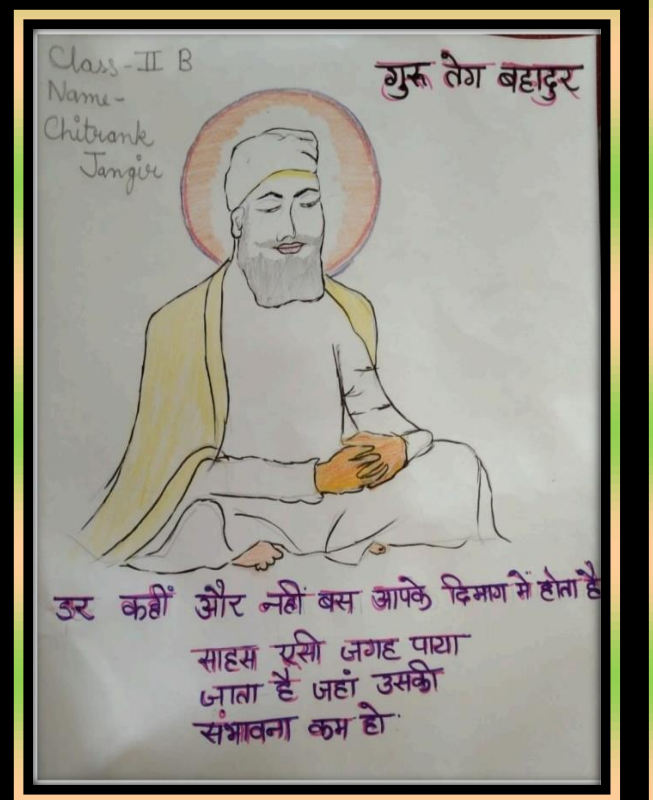 Class-II B
Name-
Chitrank
Jangir
गुरू तेग बहादुर
डर कहीं और नहीं बस आपके दिमाग में होता है
साहस एसी जगह पाया
जाता है जहां उसकी
संभावना कम हो